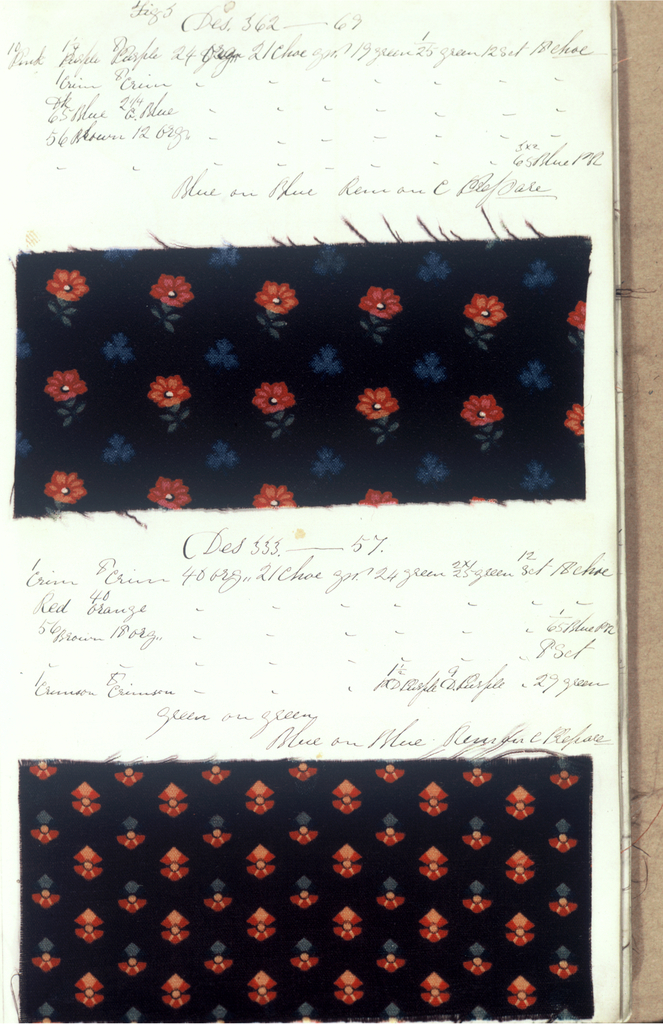 Des. 362 — 69
Pink Purple Purple 24 Org. 21 Choc 19 green 25 green 12 Sct 18 Choc
1 Crim 8 Crim " " " " " " "
65 Blue Blue " " " " " " "
56 Brown 12 Org. " " " " " "
" " " " " " " " 65 Blue
Blue on Blue Rem on C Prepare
Des 333. — 57.
1 Crim 8 Crim 40 Org. 21 Choc 24 green 25 green 12 Sct 18 Choc
Red 40 Orange " " " " " " "
56 Brown 18 Org. " " " " " 65 Blue
8 Sct
" " " " " " "
1 Crimson 8 Crimson " " " Purple 9 Purple " 29 green
green on green
Blue on Blue C Prepare